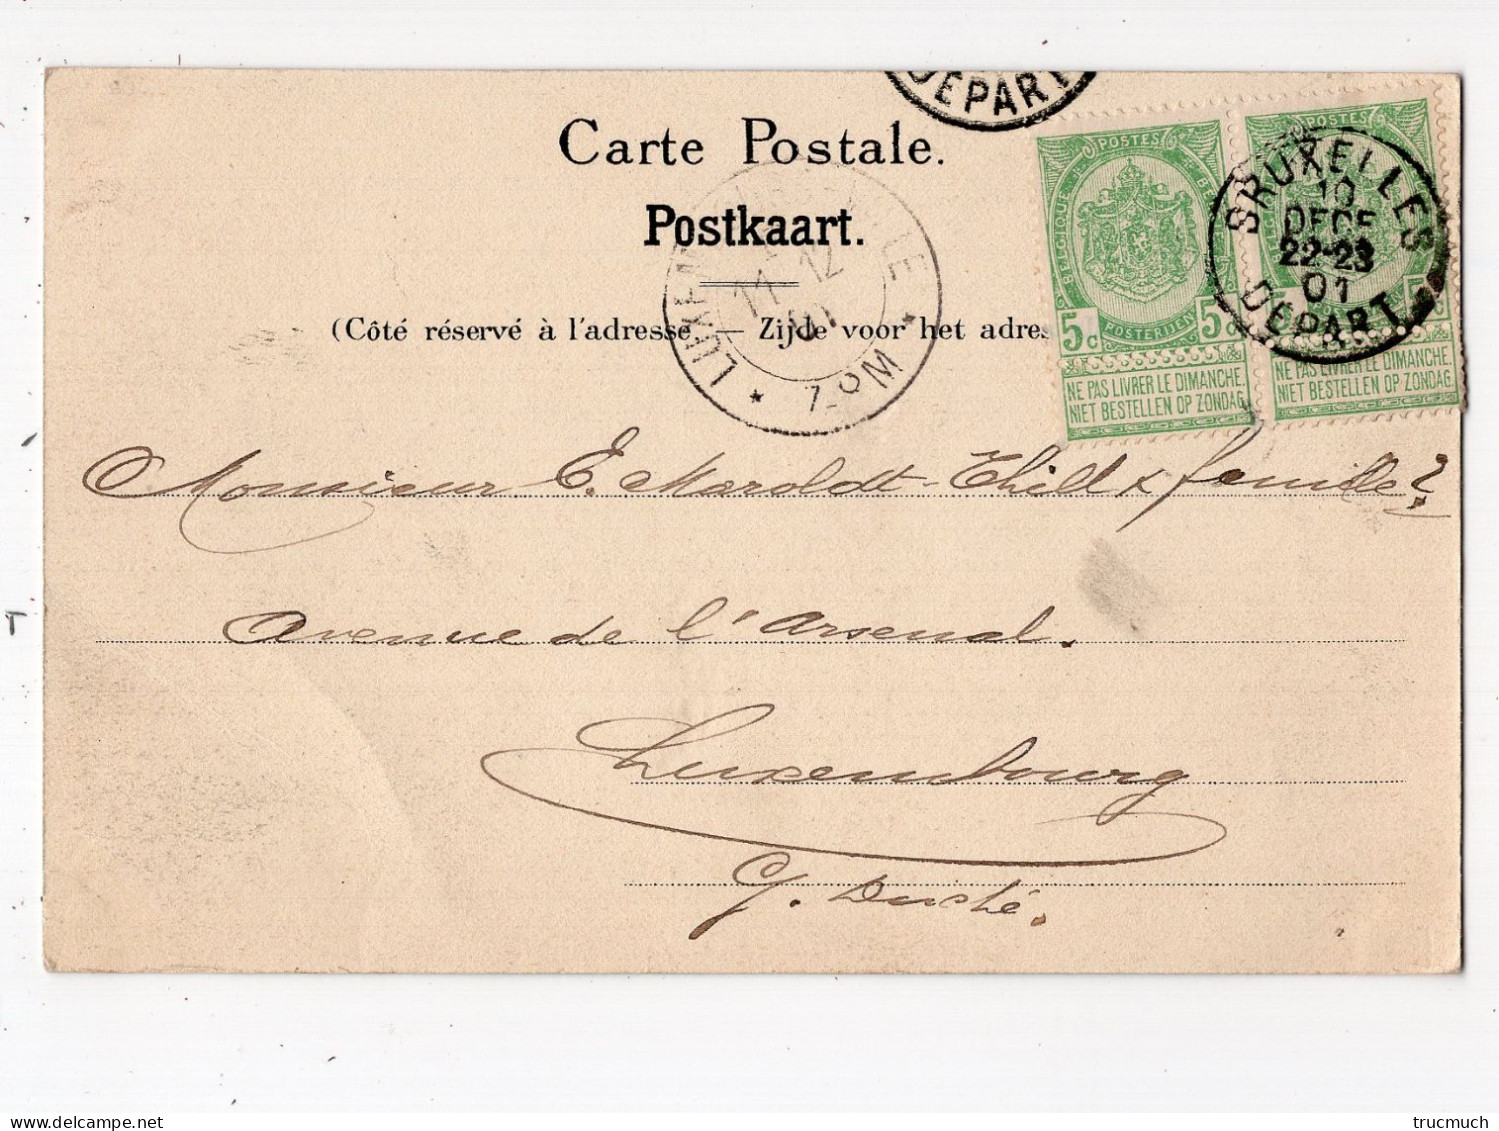 DEPART
Carte Postale.
Postkaart.
(Côté réservé à l'adresse. — Zijde voor het adres
POSTES
BELGIQUE
POSTERIJEN
5c 5c
NE PAS LIVRER LE DIMANCHE.
NIET BESTELLEN OP ZONDAG.
POSTES
NE PAS LIVRER LE DIMANCHE.
NIET BESTELLEN OP ZONDAG.
BRUXELLES
10
DECE
22-23
01
DEPART
11 12
01
7-8 M
Monsieur E. Maroldt-Thill & famille
Avenue de l'Arsenal.
Luxembourg
G. Duché.
trucmuch